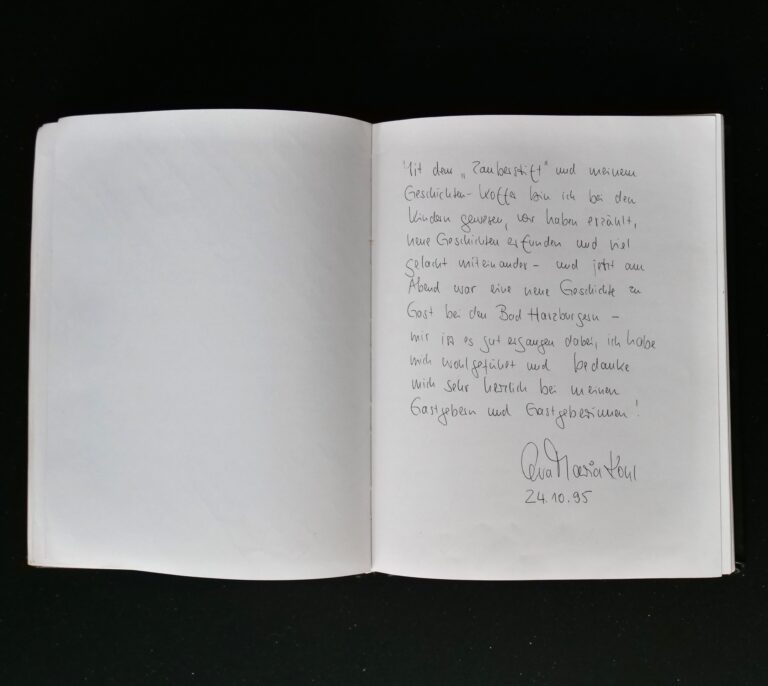 Mit dem „Zauberstift" und meinem
Geschichten-Koffer bin ich bei den
Kindern gewesen, wir haben erzählt,
neue Geschichten erfunden und viel
gelacht miteinander – und jetzt am
Abend war eine neue Geschichte zu
Gast bei den Bad Harzburgern –
mir ist es gut ergangen dabei, ich habe
mich wohlgefühlt und bedanke
mich sehr herzlich bei meinen
Gastgebern und Gastgeberinnen!
Eva Maria Kohl
24.10.95